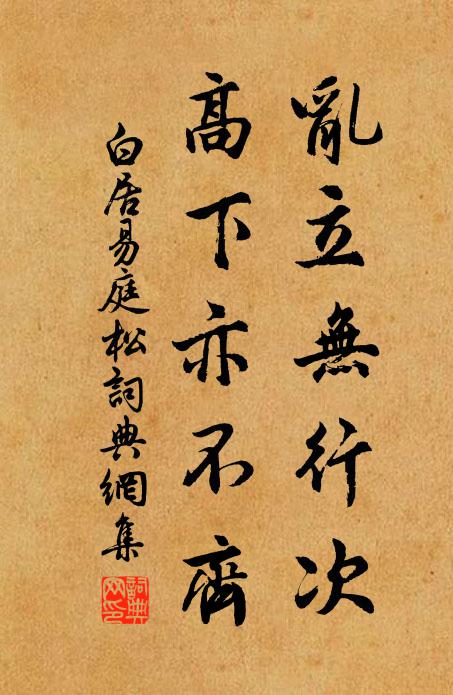 亂立無行次
高下亦不齊
白居易庭松詞典網集
詞典網印